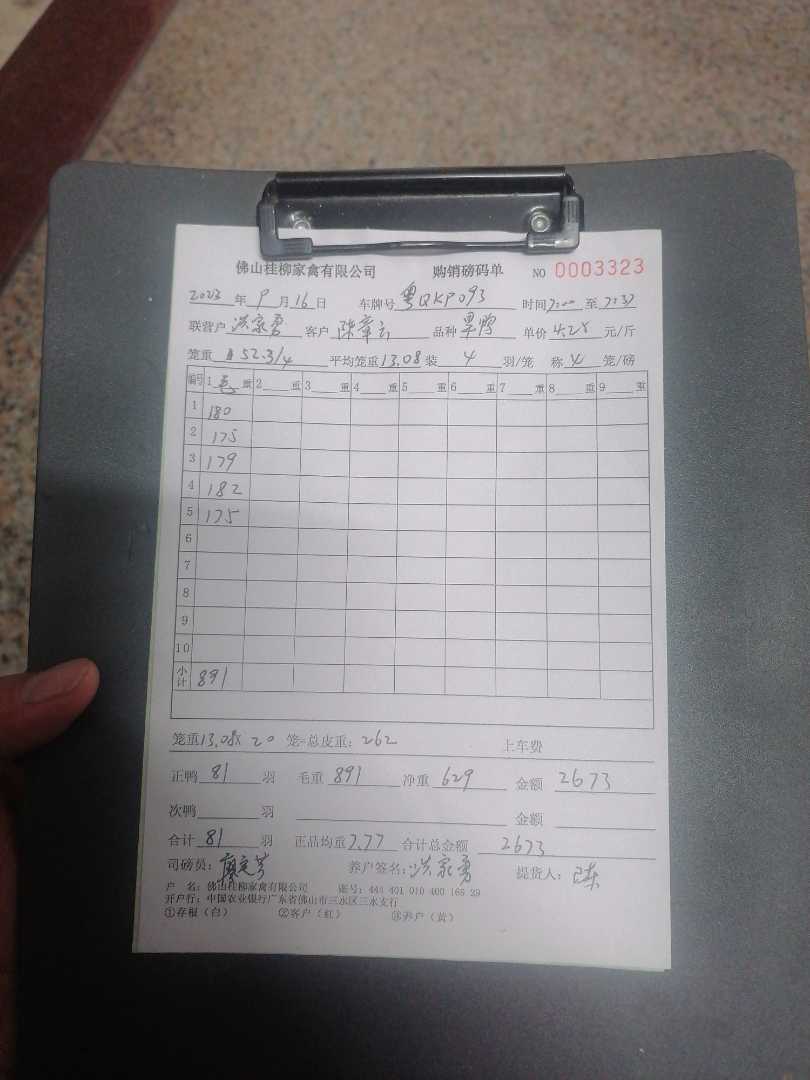 佛山桂柳家禽有限公司 购销磅码单 NO 0003323
2023 年 9 月 16 日 车牌号 粤QKP093 时间 7:00 至 7:37
联营户 洪家勇 客户 陈章云 品种 单价 4.25 元/斤
笼重 52.3/4 平均笼重 13.08 装 4 羽/笼 称 4 笼/磅
编号 1 毛 重 2 重 3 重 4 重 5 重 6 重 7 重 8 重 9 重
1 180
2 175
3 179
4 182
5 175
6
7
8
9
10
小计 891
笼重 13.08× 20 笼=总皮重: 262 上车费
正鸭 81 羽 毛重 891 净重 629 金额 2673
次鸭 羽 金额
合计 81 羽 正品均重 7.77 合计总金额 2673
司磅员: 养户签名: 洪家勇 提货人: 陈
户 名: 佛山桂柳家禽有限公司 账号: 444 401 010 400 168 29
开户行: 中国农业银行广东省佛山市三水区三水支行
①存根(白) ②客户(红) ③养户(黄)